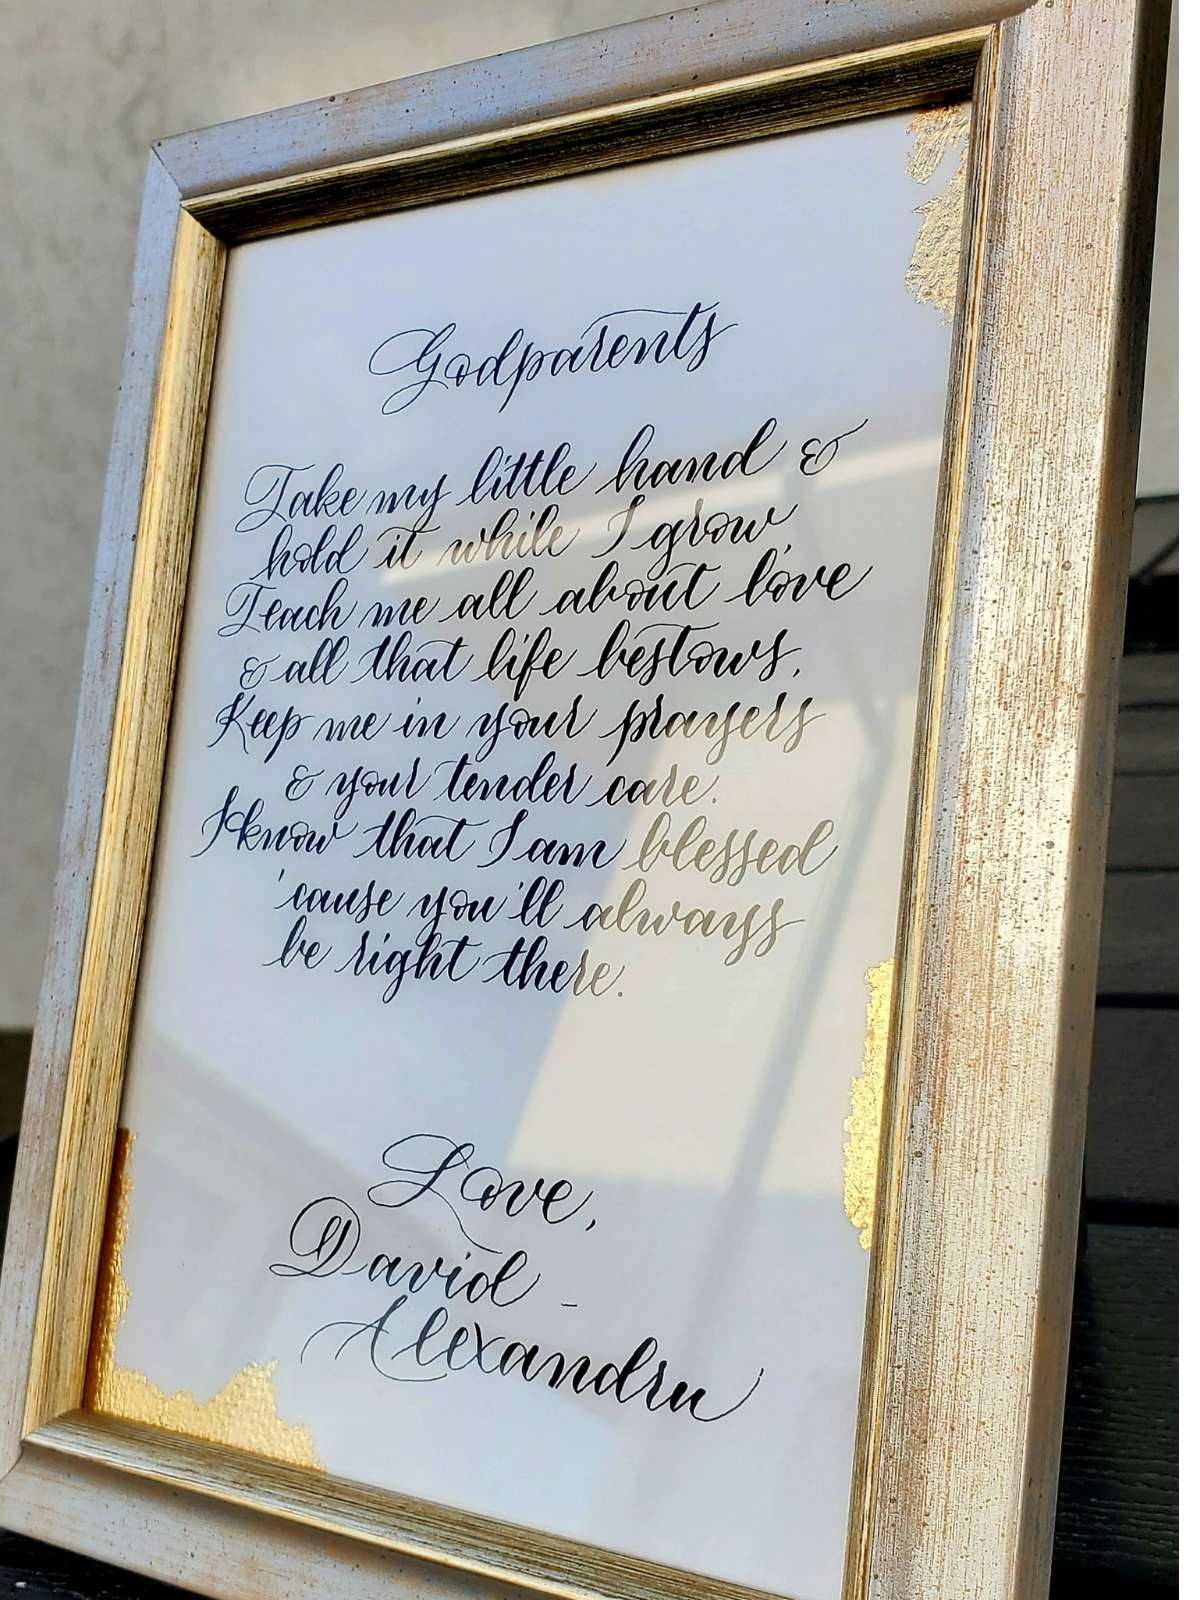 Godparents
Take my little hand &
hold it while I grow,
Teach me all about love
& all that life bestows.
Keep me in your prayers
& your tender care.
I know that I am blessed
'cause you'll always
be right there.
Love,
David -
Alexandru